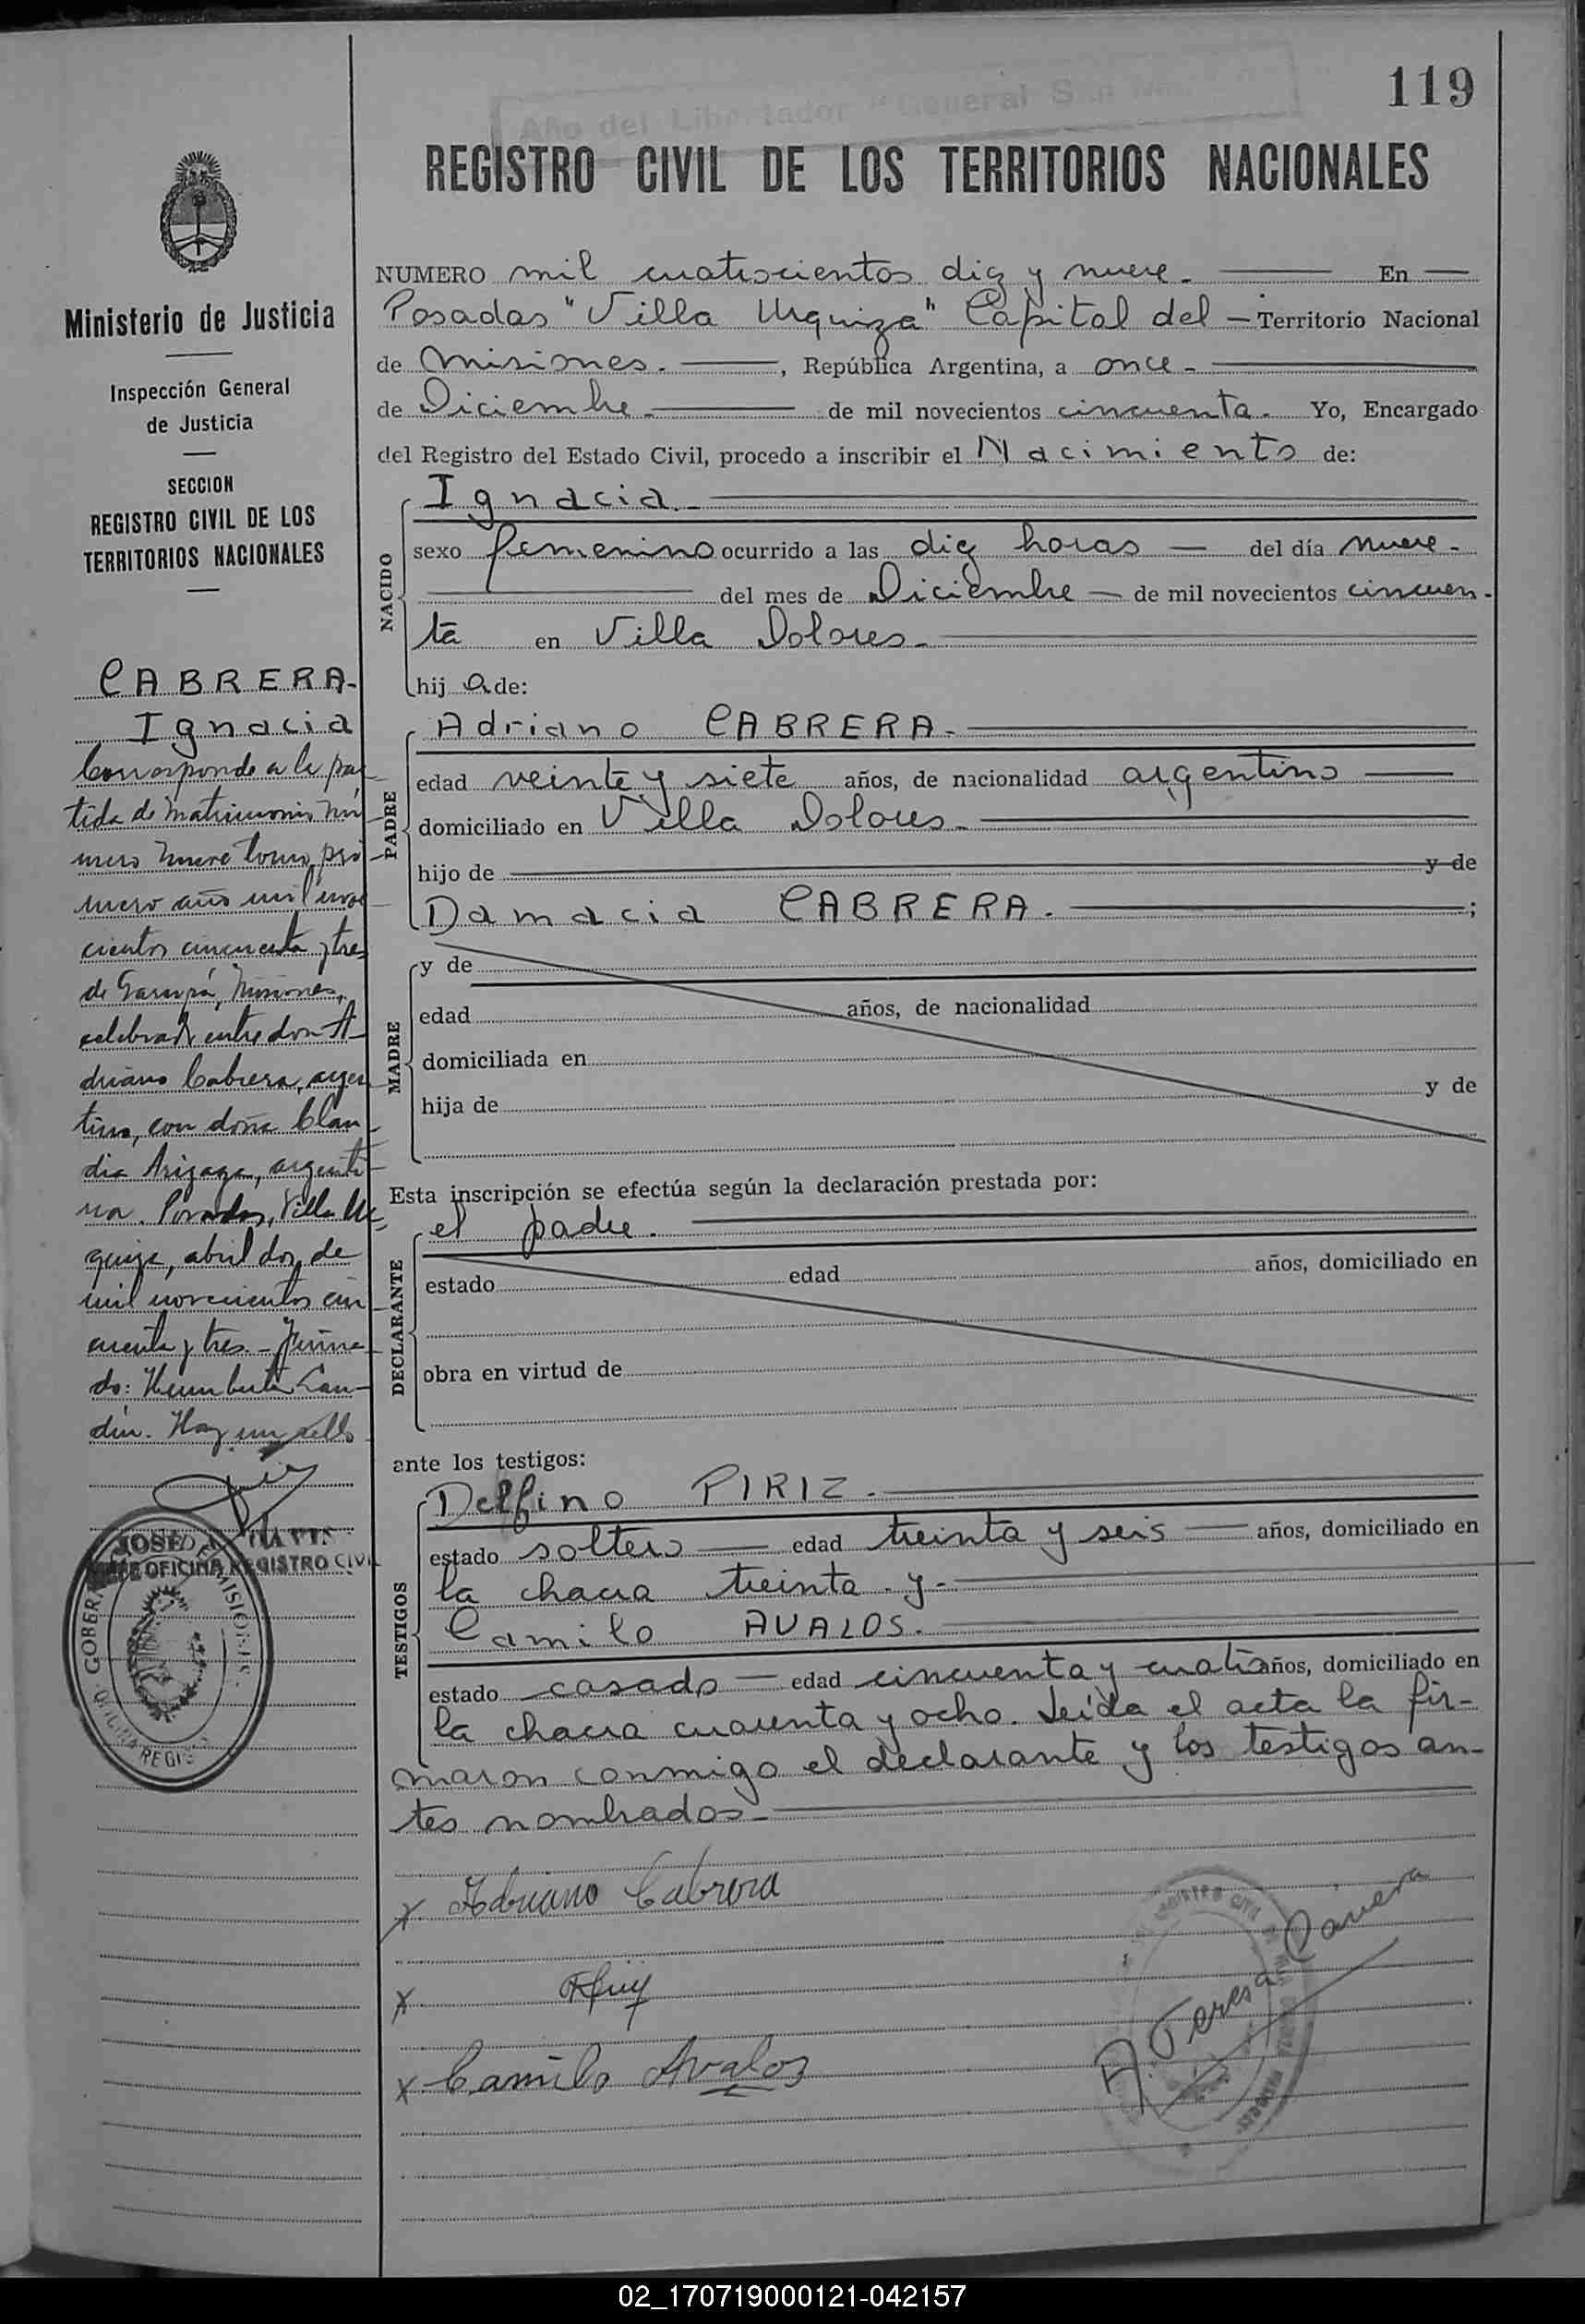 119
Año del Libertador "General San
REGISTRO CIVIL DE LOS TERRITORIOS NACIONALES
Ministerio de Justicia
Inspección General
de Justicia
SECCION
REGISTRO CIVIL DE LOS
TERRITORIOS NACIONALES
CABRERA-
Ignacia
Corresponde a la par
tida de matrimonio nú
mero nueve tomo pri
mero año mil nove
cientos cincuenta y tres
de Garupá, Misiones,
celebrado entre don A
driano Cabrera, argen
tino, con doña Clau
dia Arizaga, argenti
na. Posadas, Villa Ur
quiza, abril dos de
mil novecientos cin
cuenta y tres.- Firma
do: Humberto Lan-
din. Hay un sello
JOSE
JEFE OFICINA REGISTRO CIVIL
NUMERO mil cuatrocientos diez y nueve. En
Posadas "Villa Urquiza" Capital del - Territorio Nacional
de Misiones. , República Argentina, a once -
de Diciembre. de mil novecientos cincuenta. Yo, Encargado
del Registro del Estado Civil, procedo a inscribir el Nacimiento de:
NACIDO
Ignacia.-
sexo femenino ocurrido a las diez horas - del día nueve-
del mes de Diciembre - de mil novecientos cincuen-
ta en Villa Dolores-
hij a de:
PADRE
Adriano CABRERA-
edad veinte y siete años, de nacionalidad argentino
domiciliado en Villa Dolores-
hijo de y de
Damacia CABRERA. ;
MADRE
y de
edad años, de nacionalidad
domiciliada en
hija de y de
Esta inscripción se efectúa según la declaración prestada por:
DECLARANTE
el padre.
estado edad años, domiciliado en
obra en virtud de
ante los testigos:
TESTIGOS
Delfino PIRIZ.
estado soltero edad treinta y seis años, domiciliado en
la chacra treinta y-
Camilo AVALOS.
estado casado - edad cincuenta y cuatro años, domiciliado en
la chacra cuarenta y ocho. Leída el acta la fir-
maron conmigo el declarante y los testigos an-
tes nombrados-
x Adriano Cabrera
x
x Camilo Avalos
A. Teresa
02_170719000121-042157